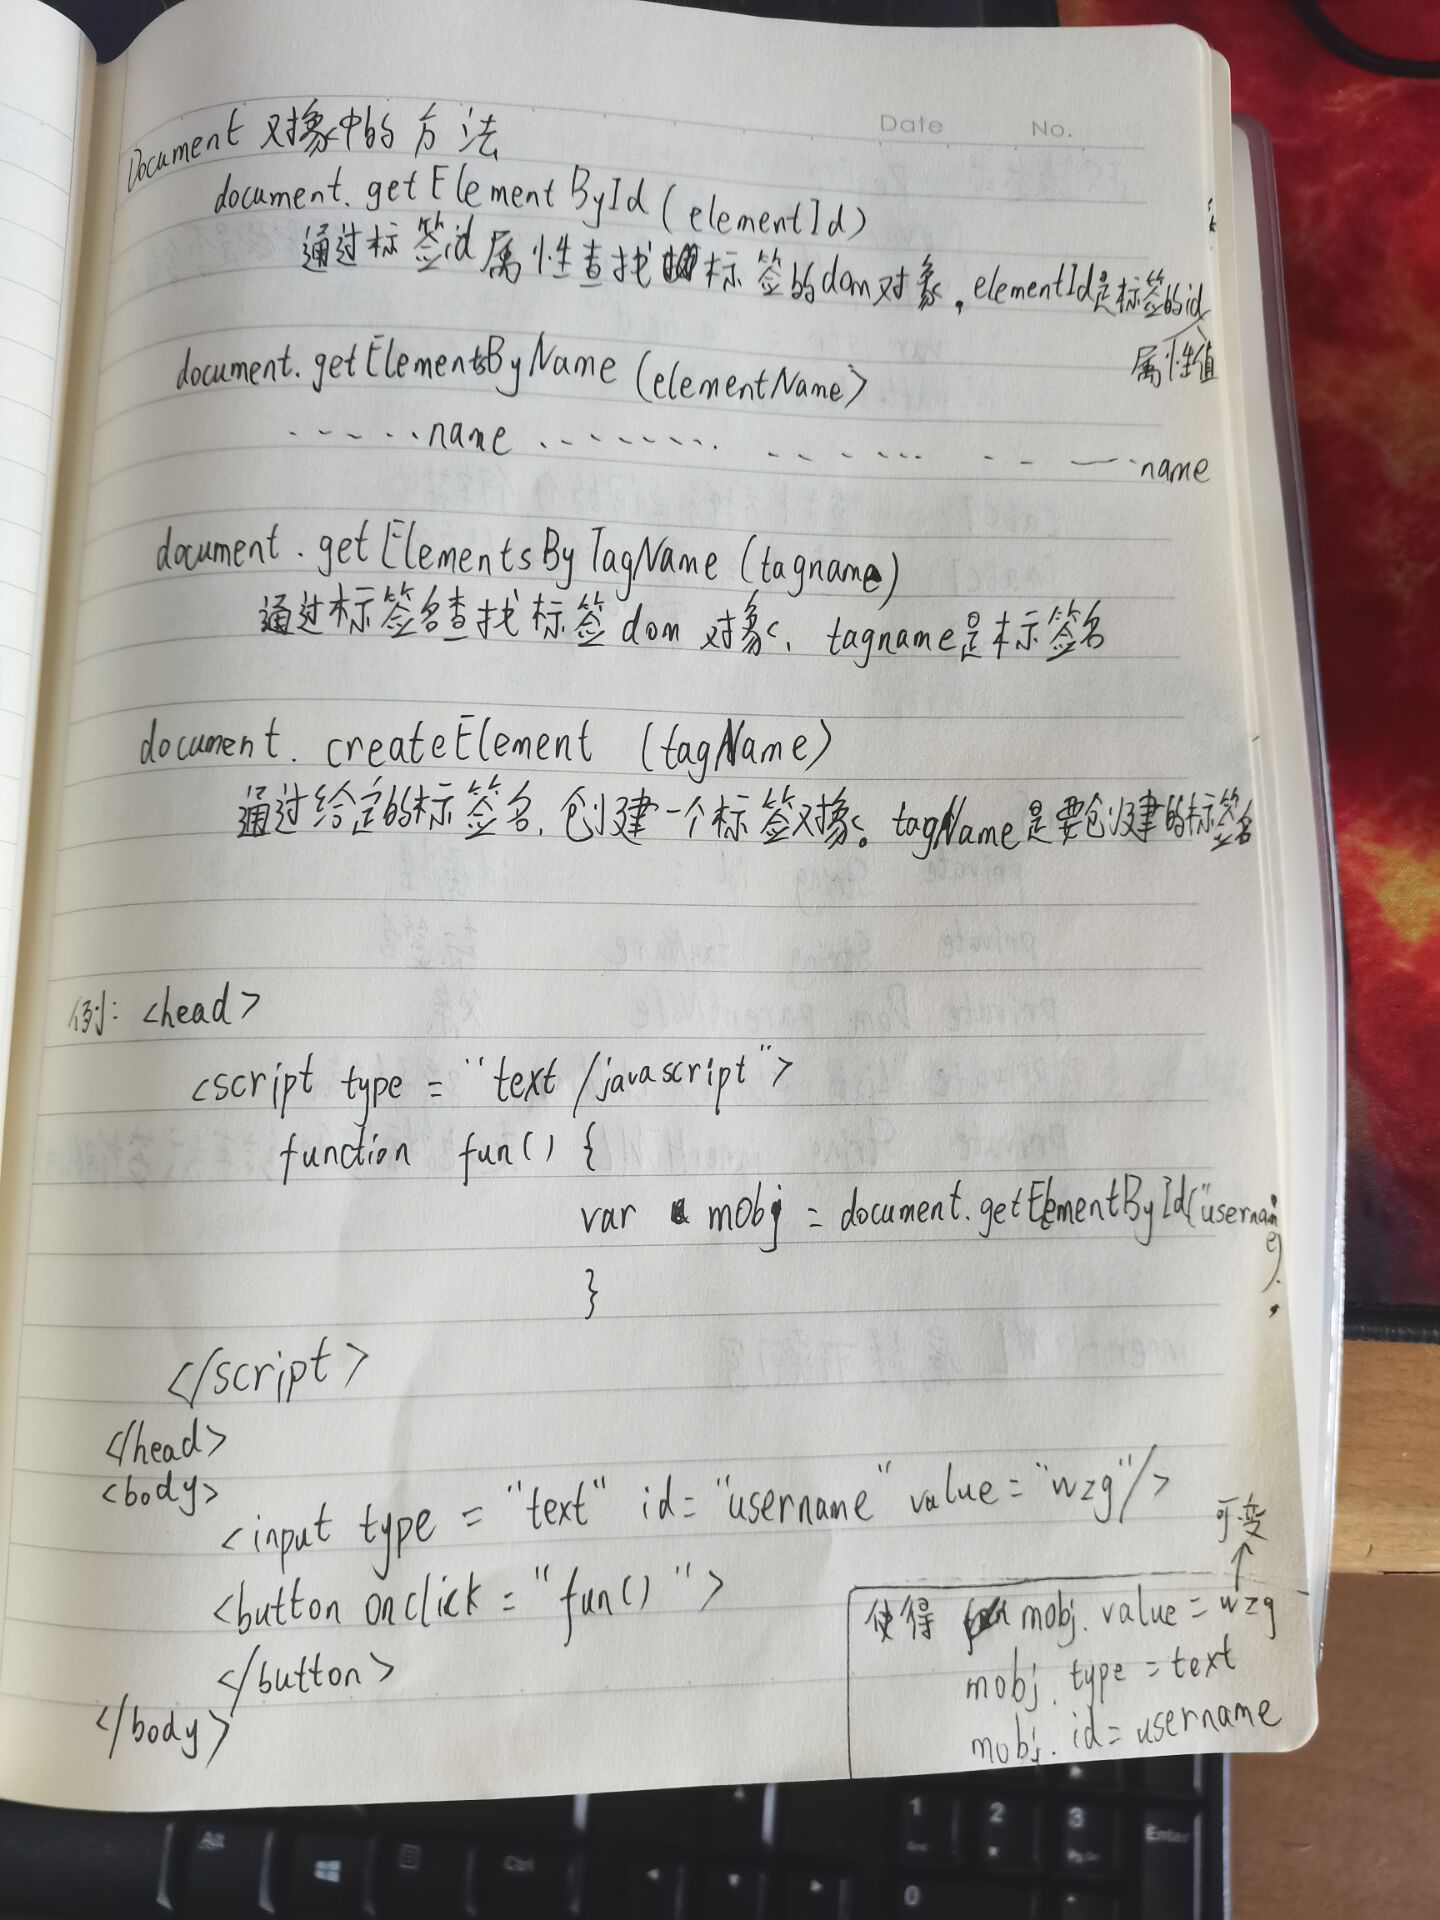 Date No.
Document 对象中的方法
document.getElementById(elementId)
通过标签id属性查找标签的dom对象,elementId是标签的id
属性值
document.getElementsByName(elementName)
······name ········ ······· -- —··name
document.getElementsByTagName(tagname)
通过标签名查找标签dom对象、tagname是标签名
document.createElement (tagName)
通过给定的标签名,创建一个标签对象。tagName是要创建的标签名
例: <head>
<script type = "text/javascript">
function fun() {
var mobj = document.getElementById("username");
}
</script>
</head>
<body>
<input type = "text" id="username" value="wzg"/>
<button onclick = "fun()">
</button>
</body>
可变
使得 mobj.value = wzg
mobj.type = text
mobj.id = username
Alt
Ctrl
1
2
3
Enter
0